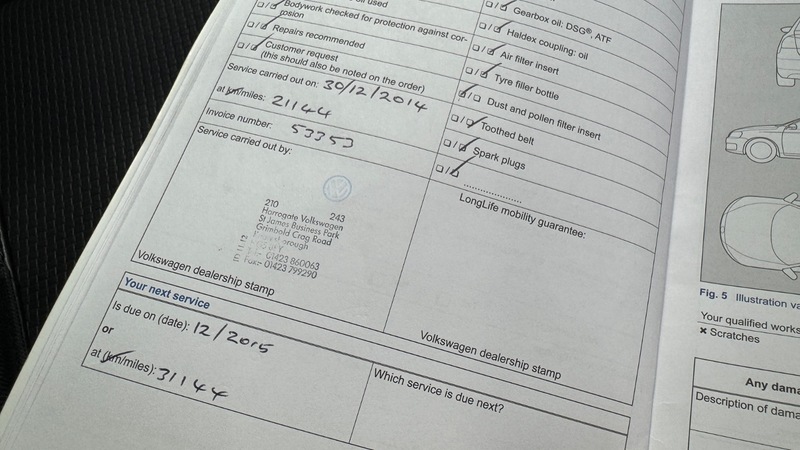 oil used
Bodywork checked for protection against cor-
rosion
Repairs recommended
Customer request
(this should also be noted on the order)
Service carried out on: 30/12/2014
at km/miles: 21144
Invoice number: 53353
Service carried out by:
210 243
Harrogate Volkswagen
St James Business Park
Grimbald Crag Road
Tel: 01423 860063
Fax: 01423 799290
Volkswagen dealership stamp
Gearbox oil: DSG®, ATF
Haldex coupling: oil
Air filter insert
Tyre filler bottle
Dust and pollen filter insert
Toothed belt
Spark plugs
LongLife mobility guarantee:
Volkswagen dealership stamp
Your next service
Is due on (date): 12/2015
or
at (km/miles): 31144
Which service is due next?
Fig. 5 Illustration
Your qualified
× Scratches
Any
Description of